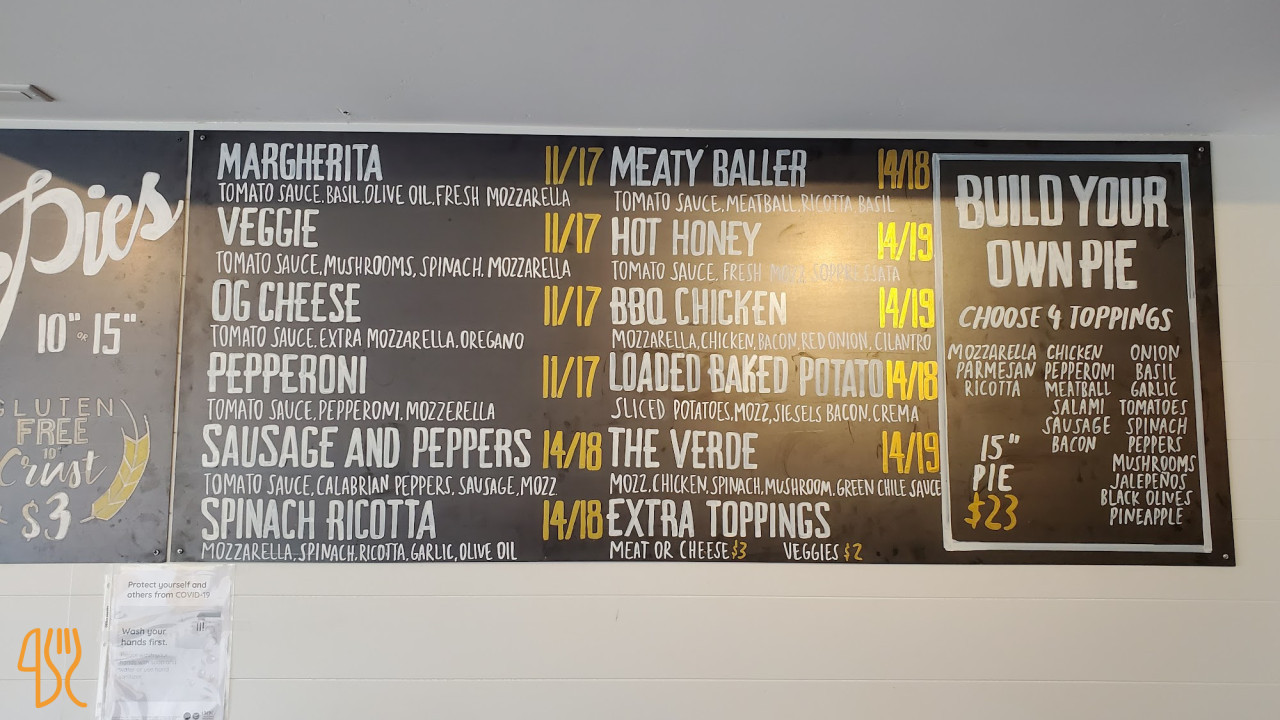 Pies
10" or 15"
GLUTEN
FREE
10"
Crust
$3
MARGHERITA 11/17
TOMATO SAUCE, BASIL, OLIVE OIL, FRESH MOZZARELLA
VEGGIE 11/17
TOMATO SAUCE, MUSHROOMS, SPINACH, MOZZARELLA
OG CHEESE 11/17
TOMATO SAUCE, EXTRA MOZZARELLA, OREGANO
PEPPERONI 11/17
TOMATO SAUCE, PEPPERONI, MOZZERELLA
SAUSAGE AND PEPPERS 14/18
TOMATO SAUCE, CALABRIAN PEPPERS, SAUSAGE, MOZZ
SPINACH RICOTTA 14/18
MOZZARELLA, SPINACH, RICOTTA, GARLIC, OLIVE OIL
MEATY BALLER 14/18
TOMATO SAUCE, MEATBALL, RICOTTA, BASIL
HOT HONEY 14/19
TOMATO SAUCE, FRESH MOZZ,
BBQ CHICKEN 14/19
MOZZARELLA, CHICKEN, BACON, RED ONION, CILANTRO
LOADED BAKED POTATO 14/18
SLICED POTATOES, MOZZ, SIESELS BACON, CREMA
THE VERDE 14/19
MOZZ, CHICKEN, SPINACH, MUSHROOM, GREEN CHILE SAUCE
EXTRA TOPPINGS
MEAT OR CHEESE $3 VEGGIES $2
BUILD YOUR
OWN PIE
CHOOSE 4 TOPPINGS
MOZZARELLA
PARMESAN
RICOTTA
15"
PIE
$23
CHICKEN
PEPPERONI
MEATBALL
SALAMI
SAUSAGE
BACON
ONION
BASIL
GARLIC
TOMATOES
SPINACH
PEPPERS
MUSHROOMS
JALEPEÑOS
BLACK OLIVES
PINEAPPLE
Protect yourself and
others from COVID-19
Wash your
hands first.